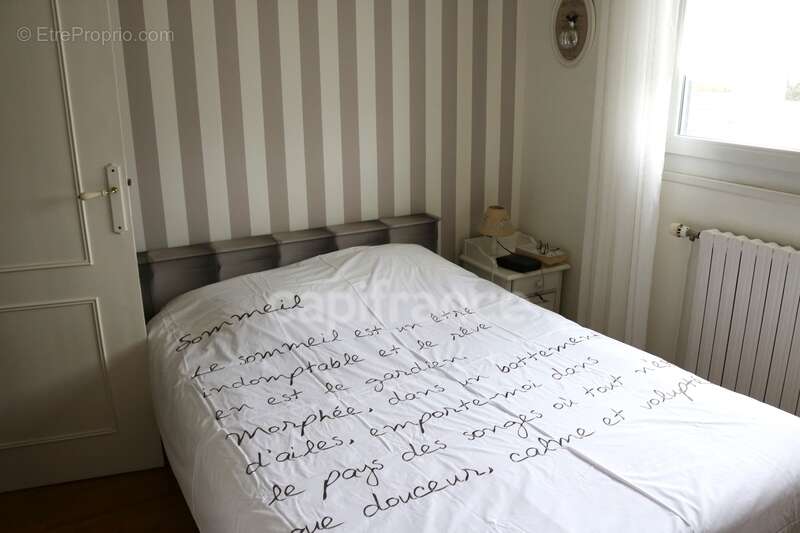 © EtreProprio.com
capifrance
Sommeil
Le sommeil est un être
indomptable et le rêve
en est le gardien.
Morphée, dans un battement
d'ailes, emporte-moi dans
le pays des songes où tout n'est
que douceur, calme et volupté